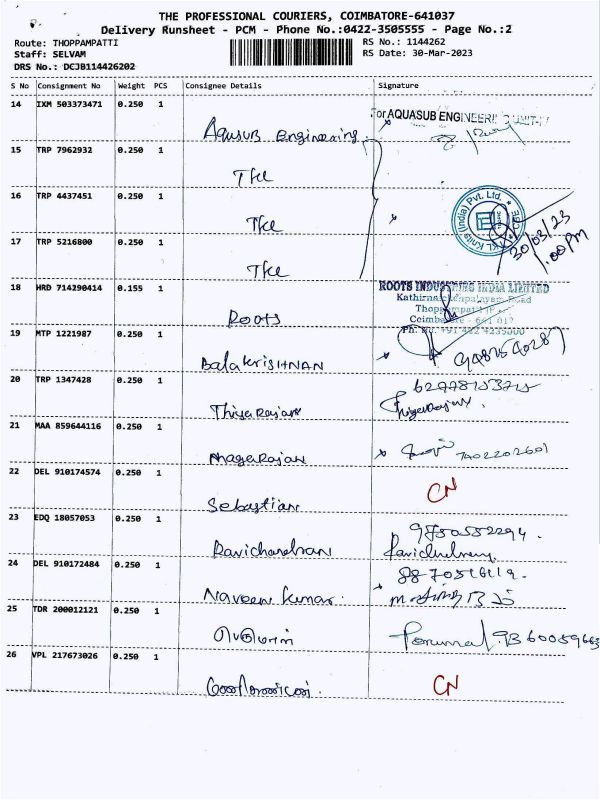 THE PROFESSIONAL COURIERS, COIMBATORE-641037
Delivery Runsheet - PCM - Phone No.:0422-3505555 - Page No.:2
Route: THOPPAMPATTI RS No.: 1144262
Staff: SELVAM RS Date: 30-Mar-2023
DRS No.: DCJB114426202
S No Consignment No Weight PCS Consignee Details Signature
14 IXM 503373471 0.250 1
Aqusub Engineering For AQUASUB ENGINEERING UNIT-IV
15 TRP 7962932 0.250 1
Tkl
16 TRP 4437451 0.250 1
Tkl TKL Knits (India) Pvt. Ltd.
17 TRP 5216800 0.250 1
Tkl 30/03/23
18 HRD 714290414 0.155 1 ROOTS INDUSTRIES INDIA LIMITED
Kathirnaickenpalayam Road
Roots Coimbatore - 641 017
19 MTP 1221987 0.250 1 Ph. No. +91 422 4235000
Balakrishnan
20 TRP 1347428 0.250 1
Thiyarajan Thiyarajan
21 MAA 859644116 0.250 1
Nagarajan 7402202601
22 DEL 910174574 0.250 1
Sebastian CN
23 EDQ 18057053 0.250 1
Ravichandran
24 DEL 910172484 0.250 1
Naveen Kumar
25 TDR 200012121 0.250 1
பெருமாள் Perumal.
26 VPL 217673026 0.250 1
CN